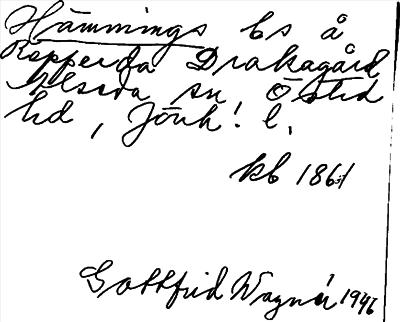 Hämmings Bs å
Repperda Drakagård
Alseda sn Östed
hd, Jönk! l.
kb 1861
Gottfrid Wagnér 1946